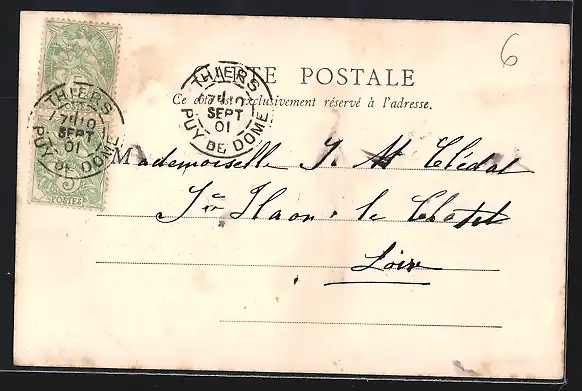 6
CARTE POSTALE
Ce côté est exclusivement réservé à l'adresse.
THIERS
SEPT
01
PUY DE DOME
THIERS
SEPT
01
PUY DE DOME
POSTES
5
POSTES
Mademoiselle J. M Clédat
St Haon le Chatel
Loire